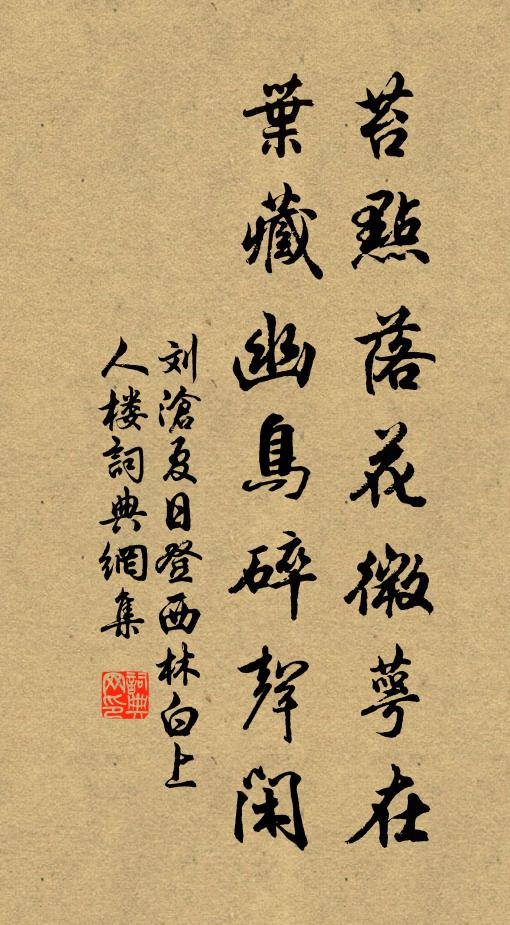 苔點落花微萼在
葉藏幽鳥碎聲閑
刘滄夏日登西林白上
人楼詞典網集
詞典
网印